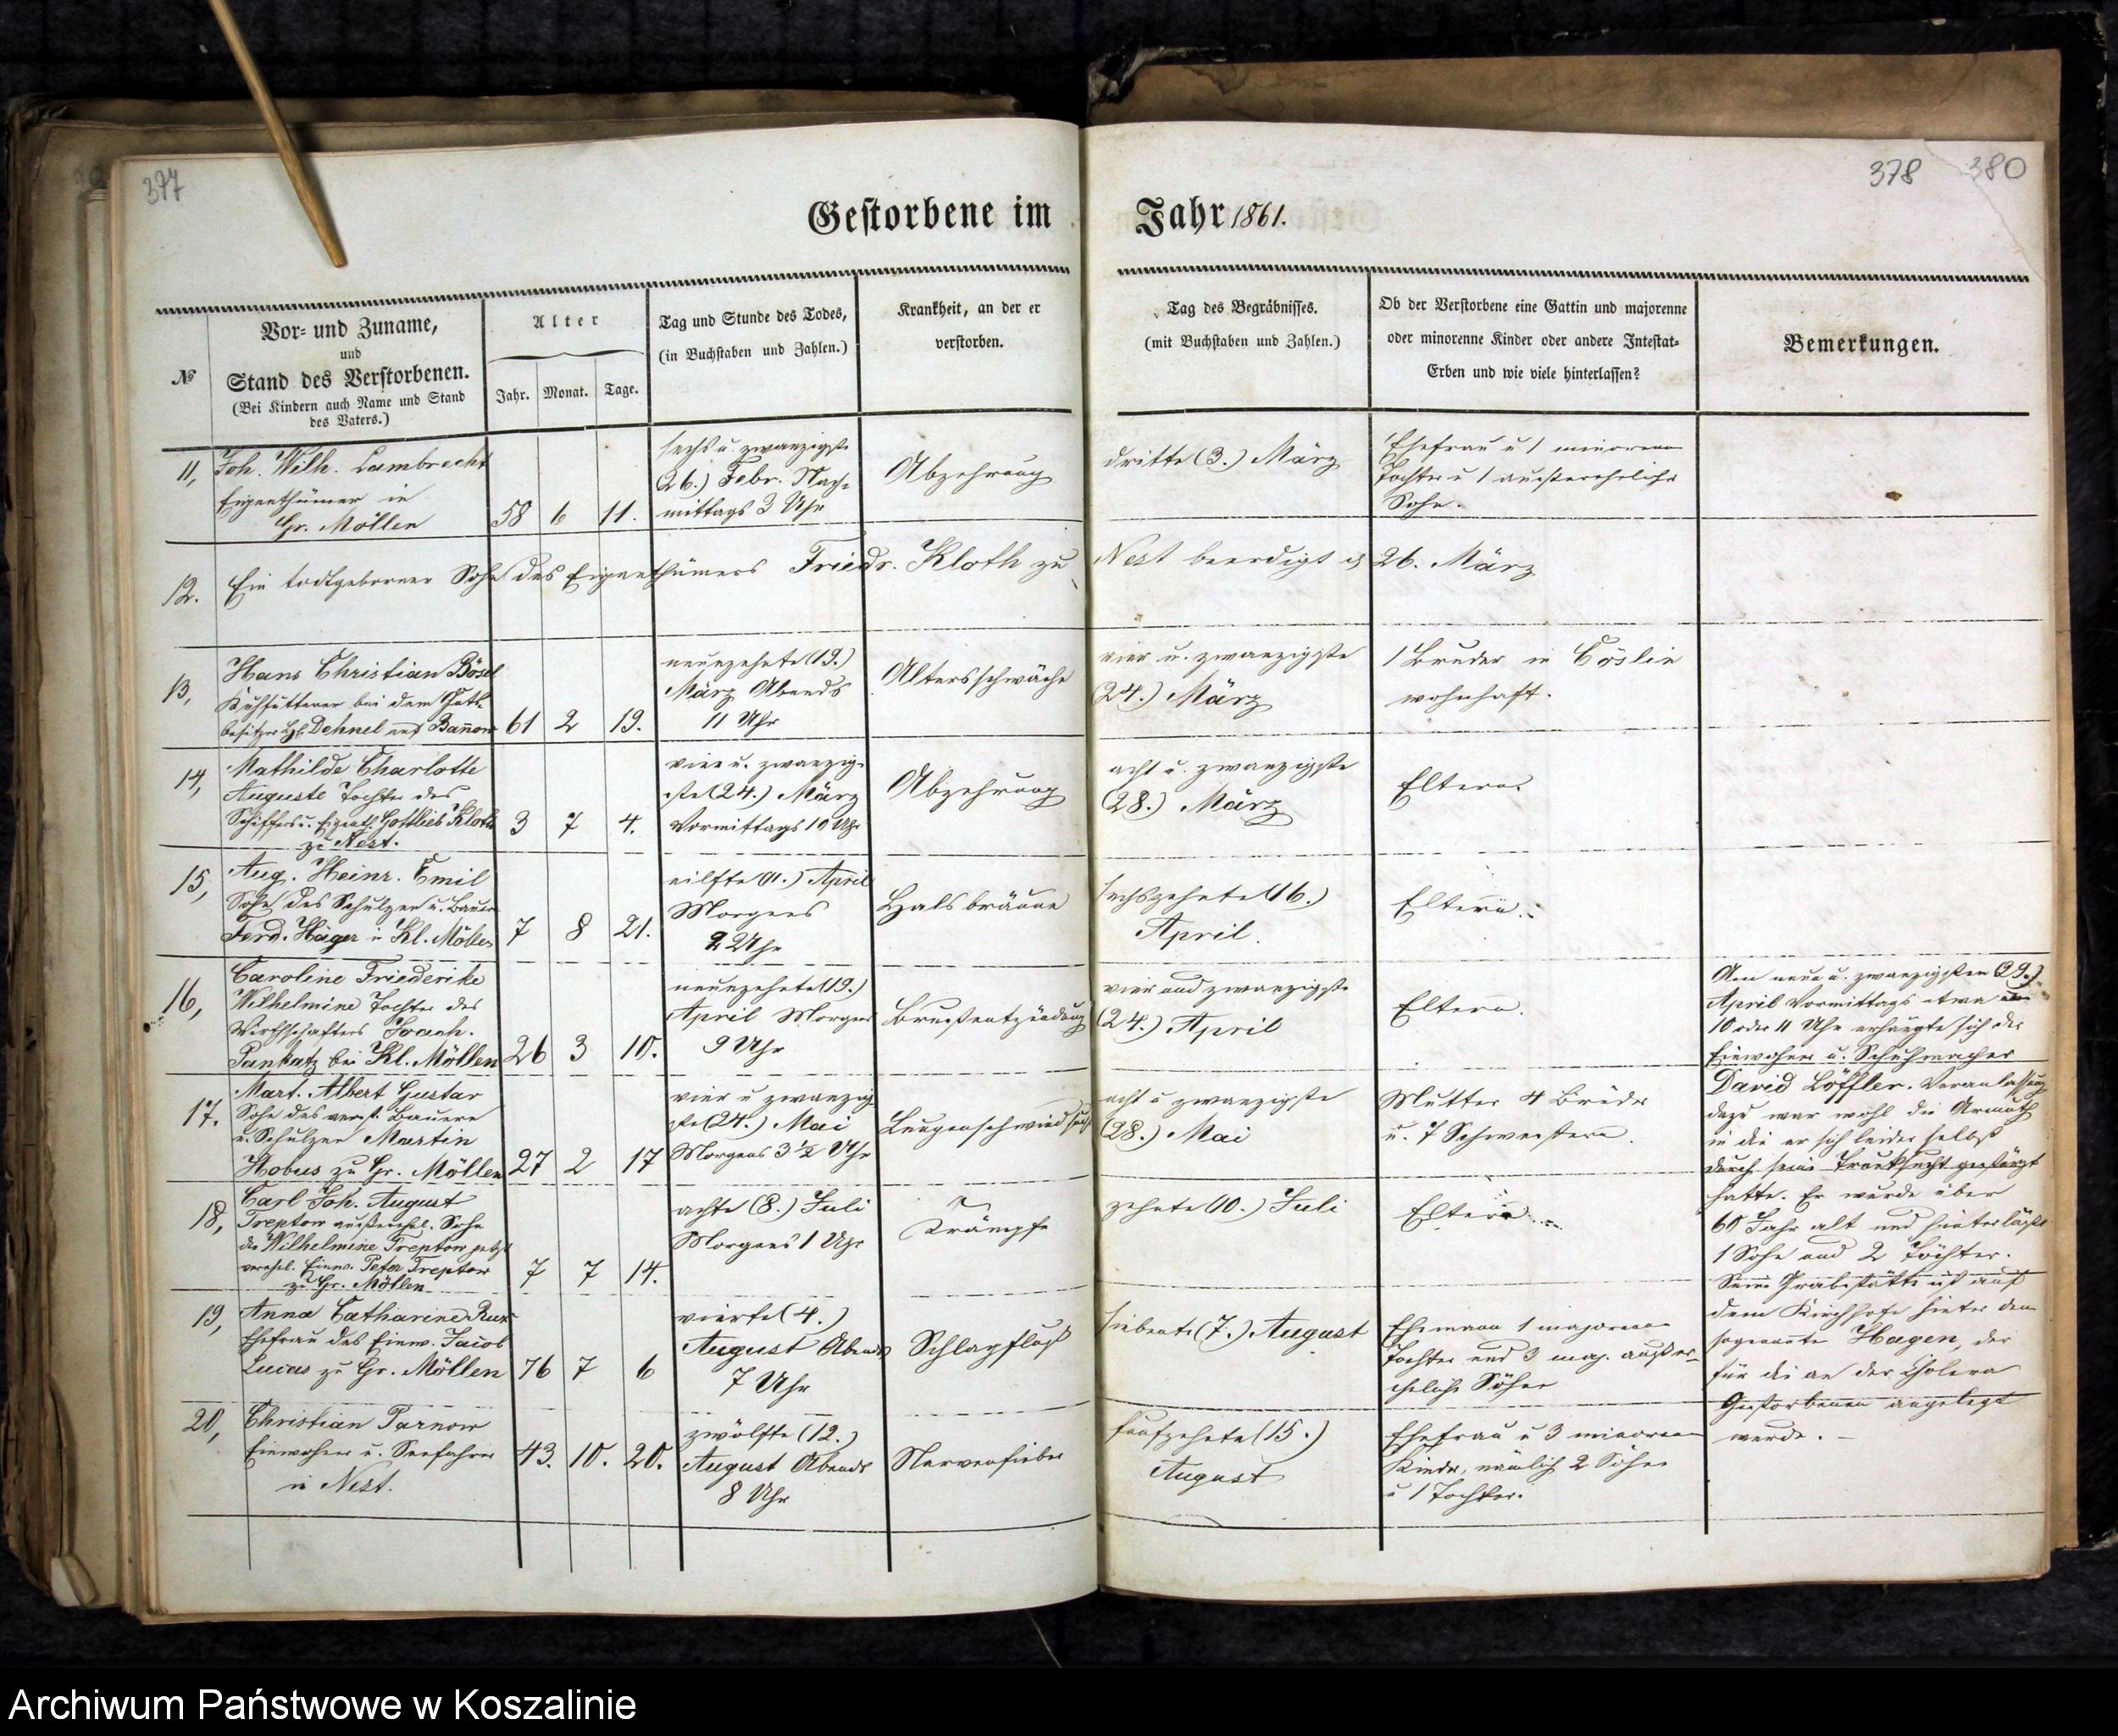 377
378
380
Gestorbene im Jahr 1861.
№
Vor- und Zuname,
und
Stand des Verstorbenen.
(Bei Kindern auch Name und Stand
des Vaters.)
Alter
Jahr. Monat. Tage.
Tag und Stunde des Todes,
(in Buchstaben und Zahlen.)
Krankheit, an der er
verstorben.
Tag des Begräbnisses.
(mit Buchstaben und Zahlen.)
Ob der Verstorbene eine Gattin und majorenne
oder minorenne Kinder oder andere Intestat-
Erben und wie viele hinterlassen?
Bemerkungen.
11,
Joh. Wilh. Lambrecht
Eigenthümer in
Gr. Möllen
58 6 11.
sechs u. zwanzigste
(26.) Febr. Nach-
mittags 3 Uhr
Abzehrung
dritte (3.) März
Ehefrau u 1 minorenne
Tochter u 1 außereheliche
Sohn.
12.
Ein todtgeborner Sohn des Eigenthümers Friedr. Kloth zu Nest beerdigt d 26. März
13,
Hans Christian Bösel
Kuhfütterer bei dem Guts-
besitzer H. Dehnel auf Bannow
61 2 19.
neunzehnte (19.)
März Abends
11 Uhr
Altersschwäche
vier u. zwanzigste
(24.) März
1 Bruder in Cöslin
wohnhaft.
14,
Mathilde Charlotte
Auguste Tochter des
Schiffers u. Eigenth. Gottlieb Kloth
zu Nest.
3 7 4.
vier u. zwanzig-
ste (24.) März
Vormittags 10 Uhr
Abzehrung
acht u. zwanzigste
(28.) März
Eltern.
15,
Aug. Heinr. Emil
Sohn des Schulzen u. Bauer
Ferd. Häger in Kl. Möllen
7 8 21.
eilfte (11.) April
Morgens
2 Uhr
Halsbräune
sechszehnte (16.)
April.
Eltern.
16,
Caroline Friederike
Wilhelmine Tochter des
Wirthschafters Joach.
Pankatz bei Kl. Möllen
26 3 10.
neunzehnte (19.)
April Morgens
9 Uhr
Brustentzündung
vier und zwanzigste
(24.) April
Eltern.
17.
Mart. Albert Gustav
Sohn des verst. Bauern
u. Schulzen Martin
Hobus zu Gr. Möllen
27 2 17
vier u zwanzig-
ste (24.) Mai
Morgens 3 ½ Uhr
Lungenschwindsucht
acht u zwanzigste
(28.) Mai
Mutter 4 Brüder
u. 7 Schwestern.
18,
Carl Joh. August
Treptow außerehel. Sohn
der Wilhelmine Treptow jetzt
verehel. Einw. Peter Treptow
zu Gr. Möllen
7 7 14.
achte (8.) Juli
Morgens 1 Uhr
Krämpfe
zehnte (10.) Juli
Eltern.
19,
Anna Catharine
Ehefrau des Einw. Jacob
Lucas zu Gr. Möllen
76 7 6
vierte (4.)
August Abends
7 Uhr
Schlagfluß
siebente (7.) August
Ehemann 1 majorenne
Tochter und 3 maj. außer-
eheliche Söhne
20,
Christian Parnow
Einwohner u. Seefahrer
in Nest.
43. 10. 20.
zwölfte (12.)
August Abends
8 Uhr
Nervenfieber
funfzehnte (15.)
August
Ehefrau u 3 minorenne
Kinder, nämlich 2 Söhne
u 1 Tochter.
Am neun u. zwanzigsten (29.)
April Vormittags etwa um
10 oder 11 Uhr erhängte sich der
Einwohner u. Schuhmacher
David Löffler. Veranlassung
dazu war wohl die Armuth
in die er sich leider selbst
durch seine Trunksucht gestürzt
hatte. Er wurde über
60 Jahr alt und hinterläßt
1 Sohn und 2 Töchter.
Seine Grabstätte ist auf
dem Kirchhofe hinter dem
sogenannten Hagen, der
für die an der Cholera
Gestorbenen angelegt
wurde. —
Archiwum Państwowe w Koszalinie